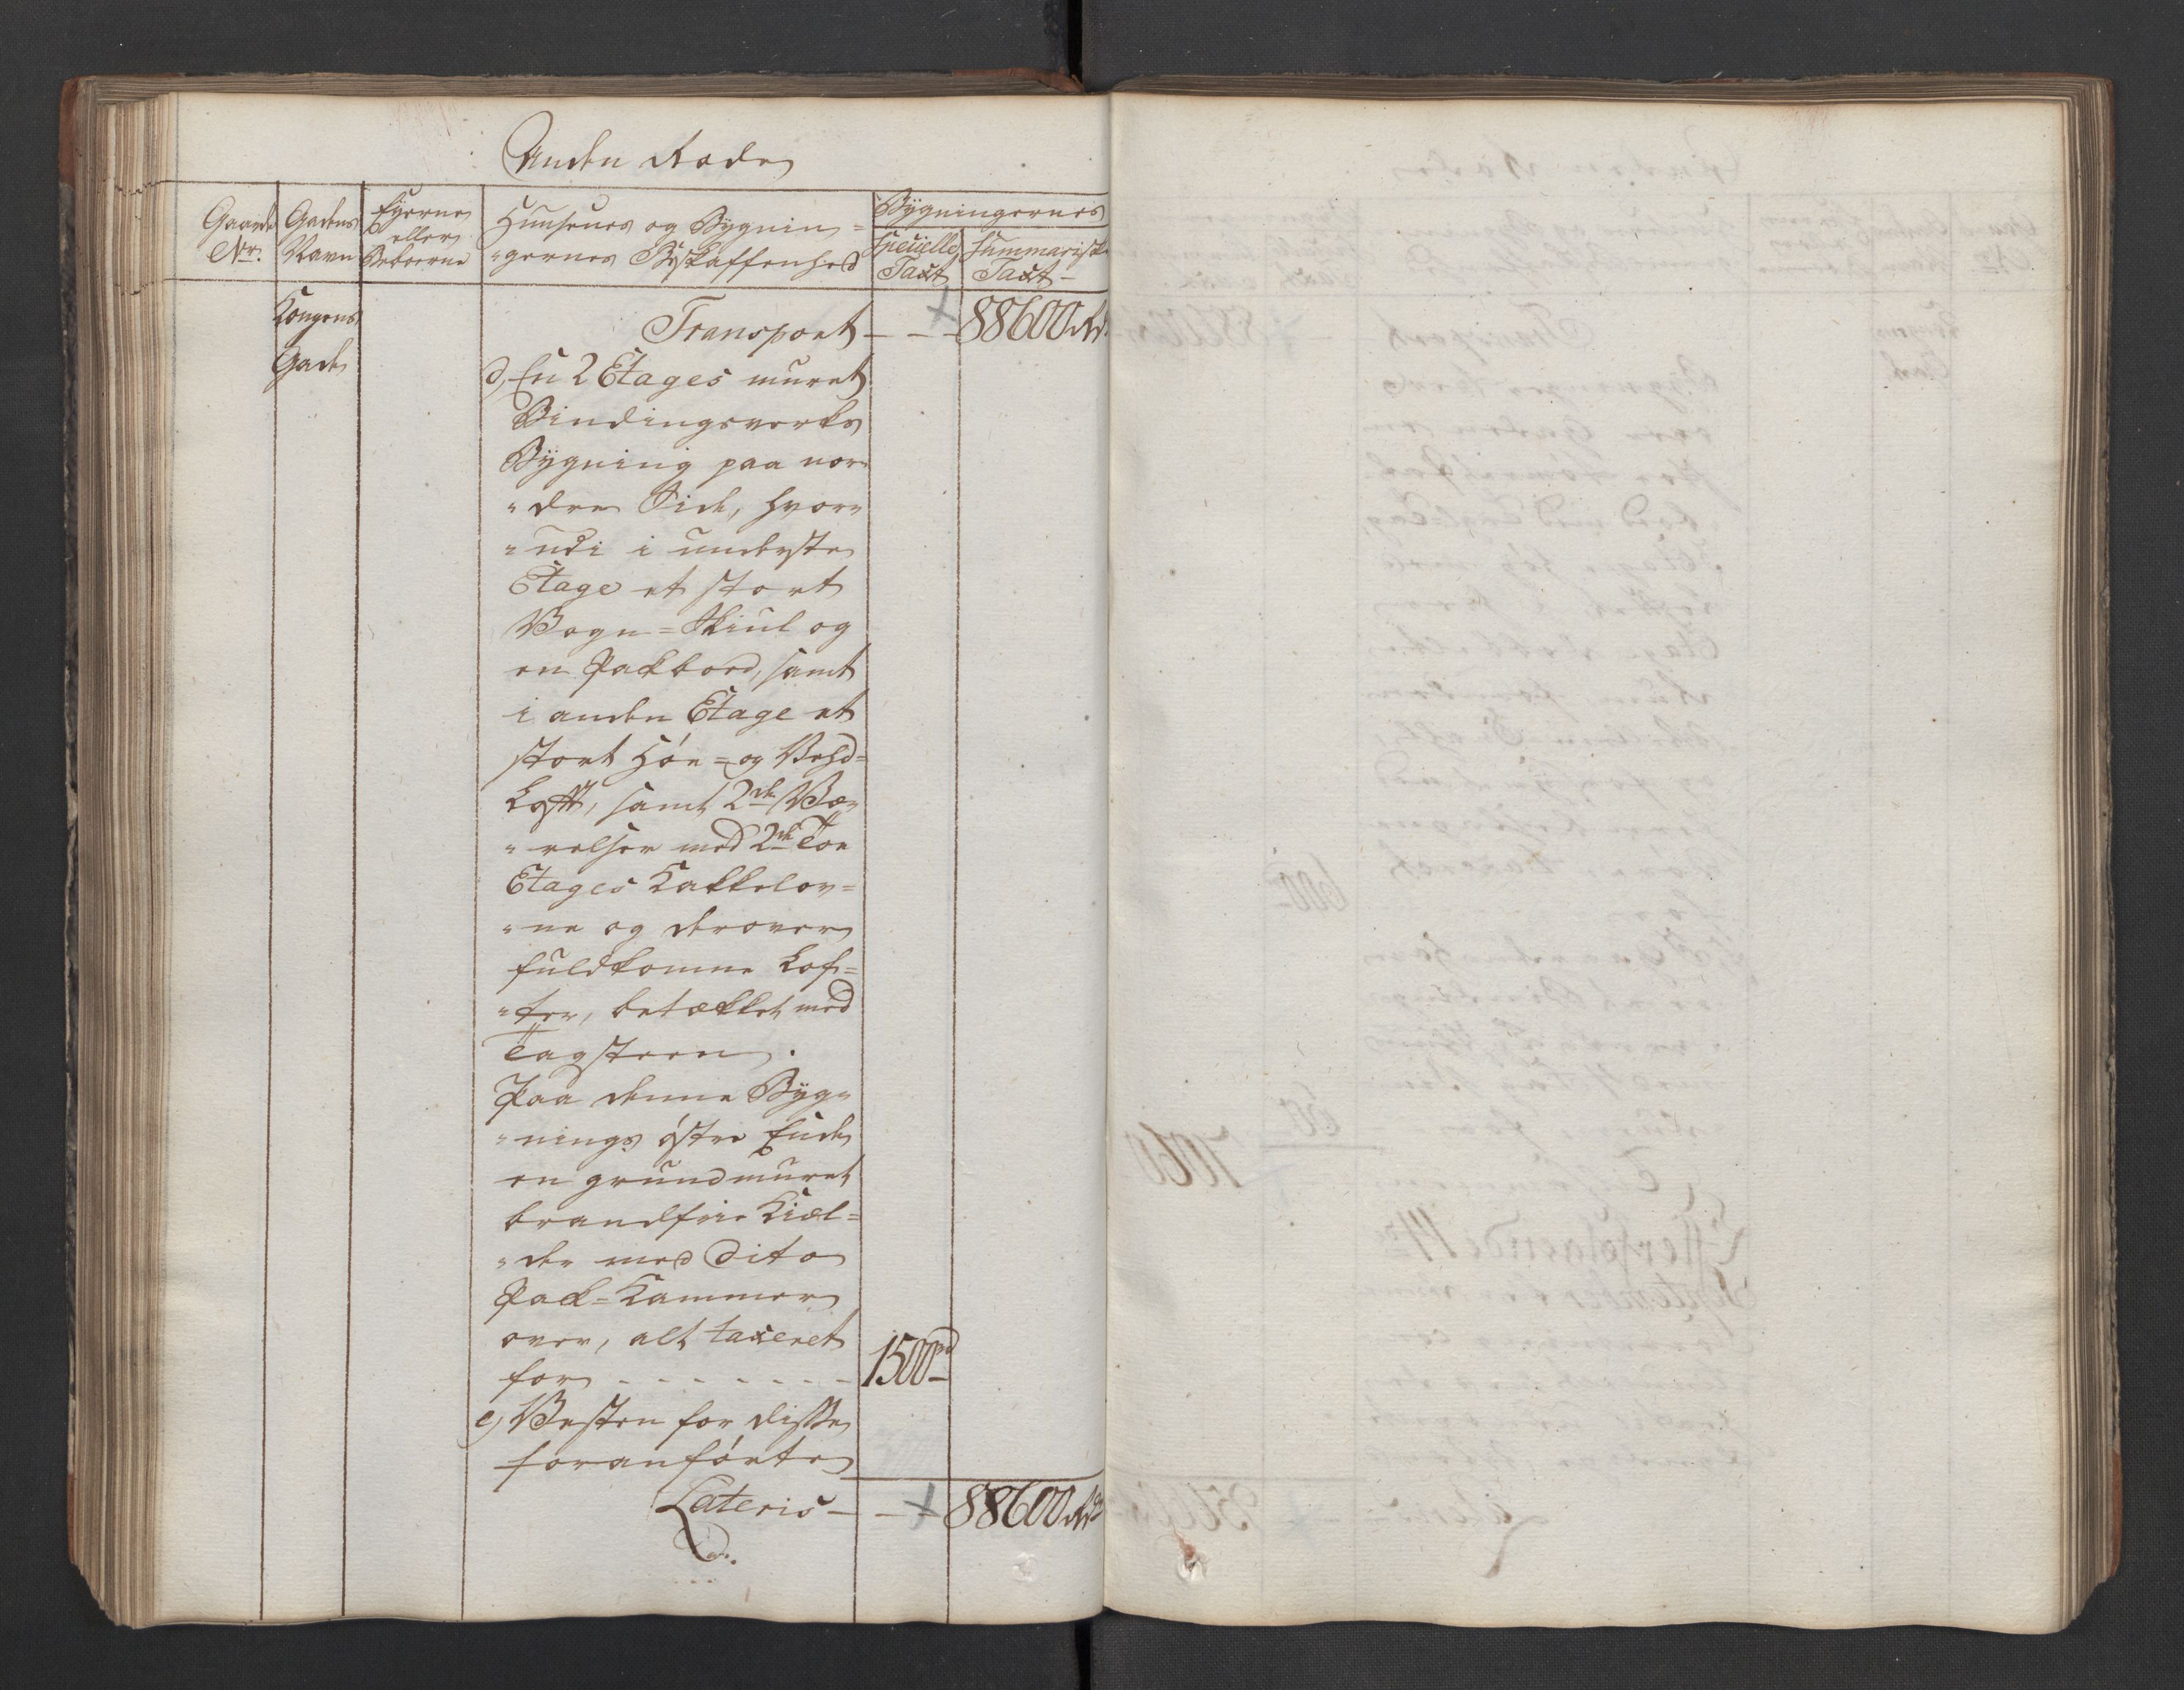 Anden Rode
Gaards No.
Gadens Navn
Ejerne eller Beboerne
Huusenes og Bÿgnin=
"gernes Beskaffenhed
Bÿgningernes
Specielle Taxt
Summariske Taxt
Kongens
Gade
Transport - - - 88600 Rd
d, En 2 Etages muret
Bindingsverks
Bÿgning paa nor=
"dre Side, hvor=
"udi i underste
Etage et stort
Vogn=Skiul og
en Pakboed, samt
i anden Etage et
stort Høe= og Vehd=
Loftt, samt 2de Væ=
"relser med 2de Toe
Etages Kakkelov=
"ne og derover
fuldkomne Lof=
"ter, betækket med
Tagsteen.
Paa denne Bÿg=
"nings østre Ende
en grundmuret
brandfrie Kiæl=
"der med Dito
Pack=Kammer
over, alt taxeret
for - - - - - - - 1500rd
e, Resten for disse
foranførte
Lateris - - - 88600 Rd